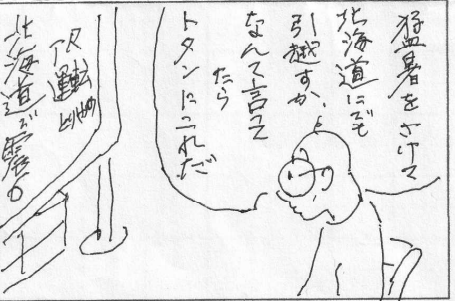 猛暑をさけて
北海道にでも
引越すか、
なんて言って
たら
トタンにこれだ
仮運転
北海道で震